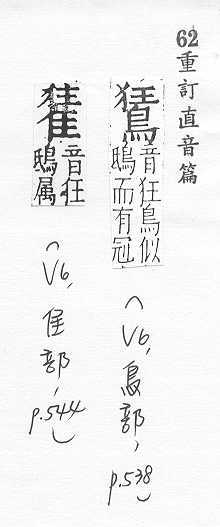 62重訂直音篇
鵟
音狂鳥似
鴟而有冠
(V6, 鳥部, p.538)
音狂
鴟属
(V6, 隹部, p.544)